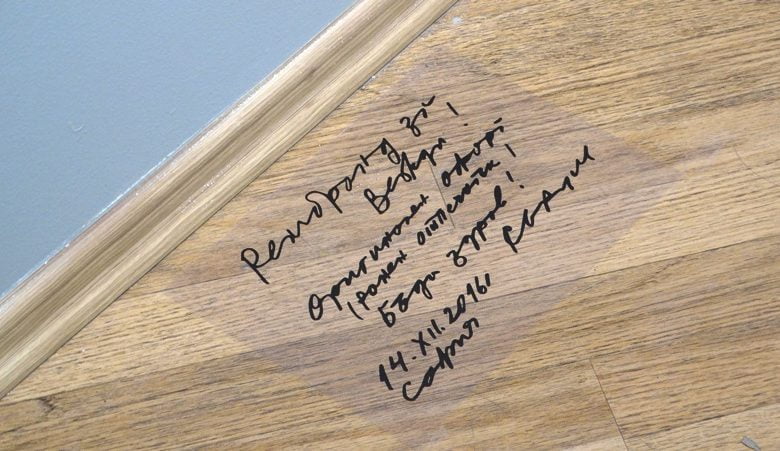 Рембранд за
Вежди!
Оригинален офорт
отпечатък!
Бъди здрав!
14.XII.2016
София